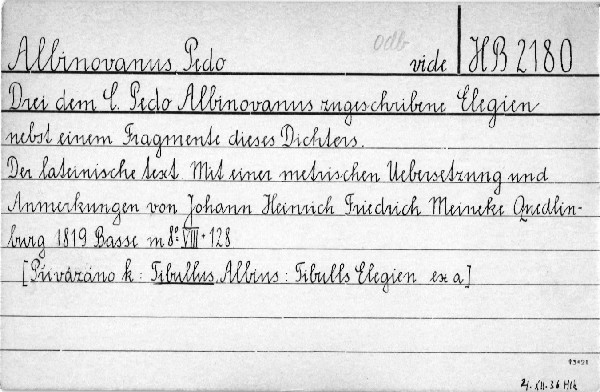 odb
Albinovanus, Pedo vide HB 2180
Drei dem C. Pedo Albinovanus zugeschribene Elegien
nebst einem Fragmente dieses Dichters.
Der lateinische text. Mit einer metrischen Uebersetzung und
Anmerkungen von Johann Heinrich Friedrich Meineke Quedlin-
burg 1819 Basse m 8° VIII + 128
[Přivázáno k: Tibullus, Albius: Tibulls Elegien ex a]
21. XII. 36